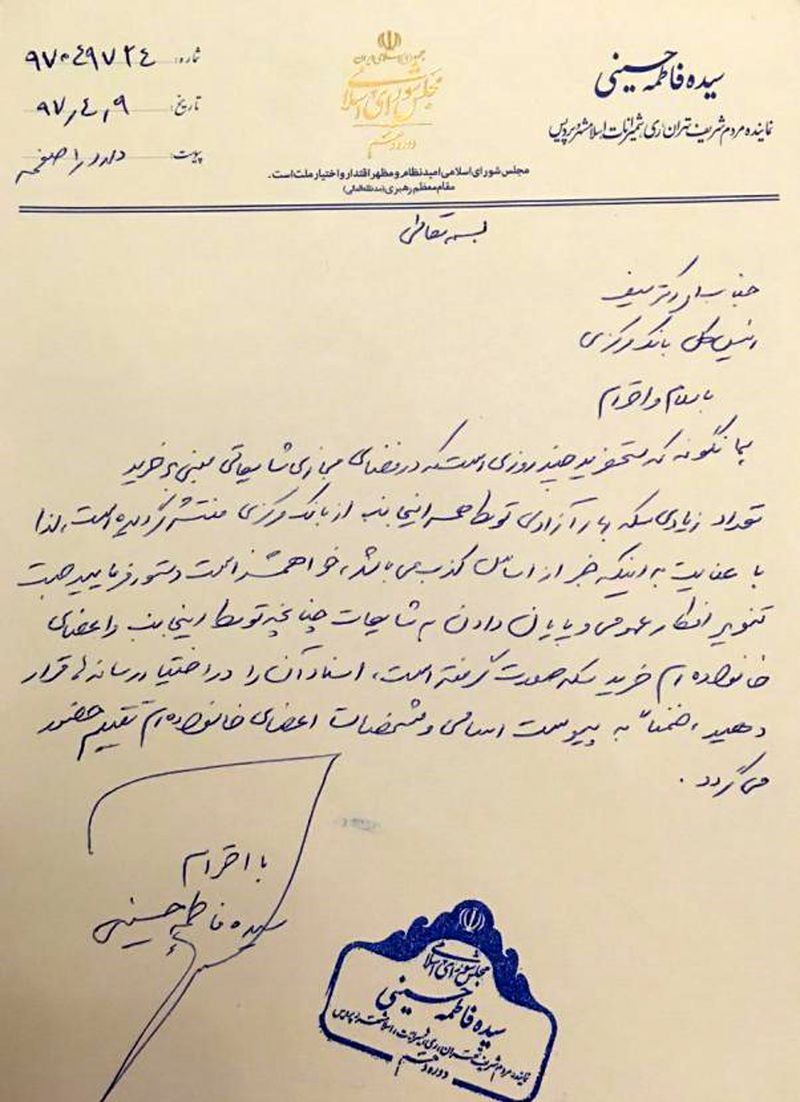 جمهوری اسلامی ایران
مجلس شورای اسلامی
دوره دهم
مجلس شورای اسلامی امید نظام و مظهر اقتدار و اختیار ملت است.
مقام معظم رهبری (مدظله‌العالی)
سیده فاطمه حسینی
نماینده مردم شریف تهران، ری، شمیرانات، اسلامشهر و پردیس
شماره: ۹۷۰۴۹۷۳۴
تاریخ: ۹۷,۴,۹
پیوست: دارد
بسمه تعالی
جناب آقای دکتر سیف
رئیس کل بانک مرکزی
با سلام و احترام
همانگونه که مستحضرید چند روزی است که در فضای مجازی شایعاتی مبنی بر خرید
تعداد زیادی سکه بهار آزادی توسط اینجانب از بانک مرکزی منتشر گردیده است، لذا
با عنایت به اینکه خبر از اساس کذب می باشد، خواهشمند است دستور فرمایید جهت
تنویر افکار عمومی و پایان دادن به شایعات چنانچه توسط اینجانب و اعضای
خانواده ام خرید سکه صورت گرفته است، اسناد آن را در اختیار رسانه ها قرار
دهید، ضمناً به پیوست اسامی و مشخصات اعضای خانواده ام تقدیم حضور
می گردد.
با احترام
سیده فاطمه حسینی
مجلس شورای اسلامی
سیده فاطمه حسینی
نماینده مردم شریف تهران، ری، شمیرانات، اسلامشهر و پردیس
دوره دهم